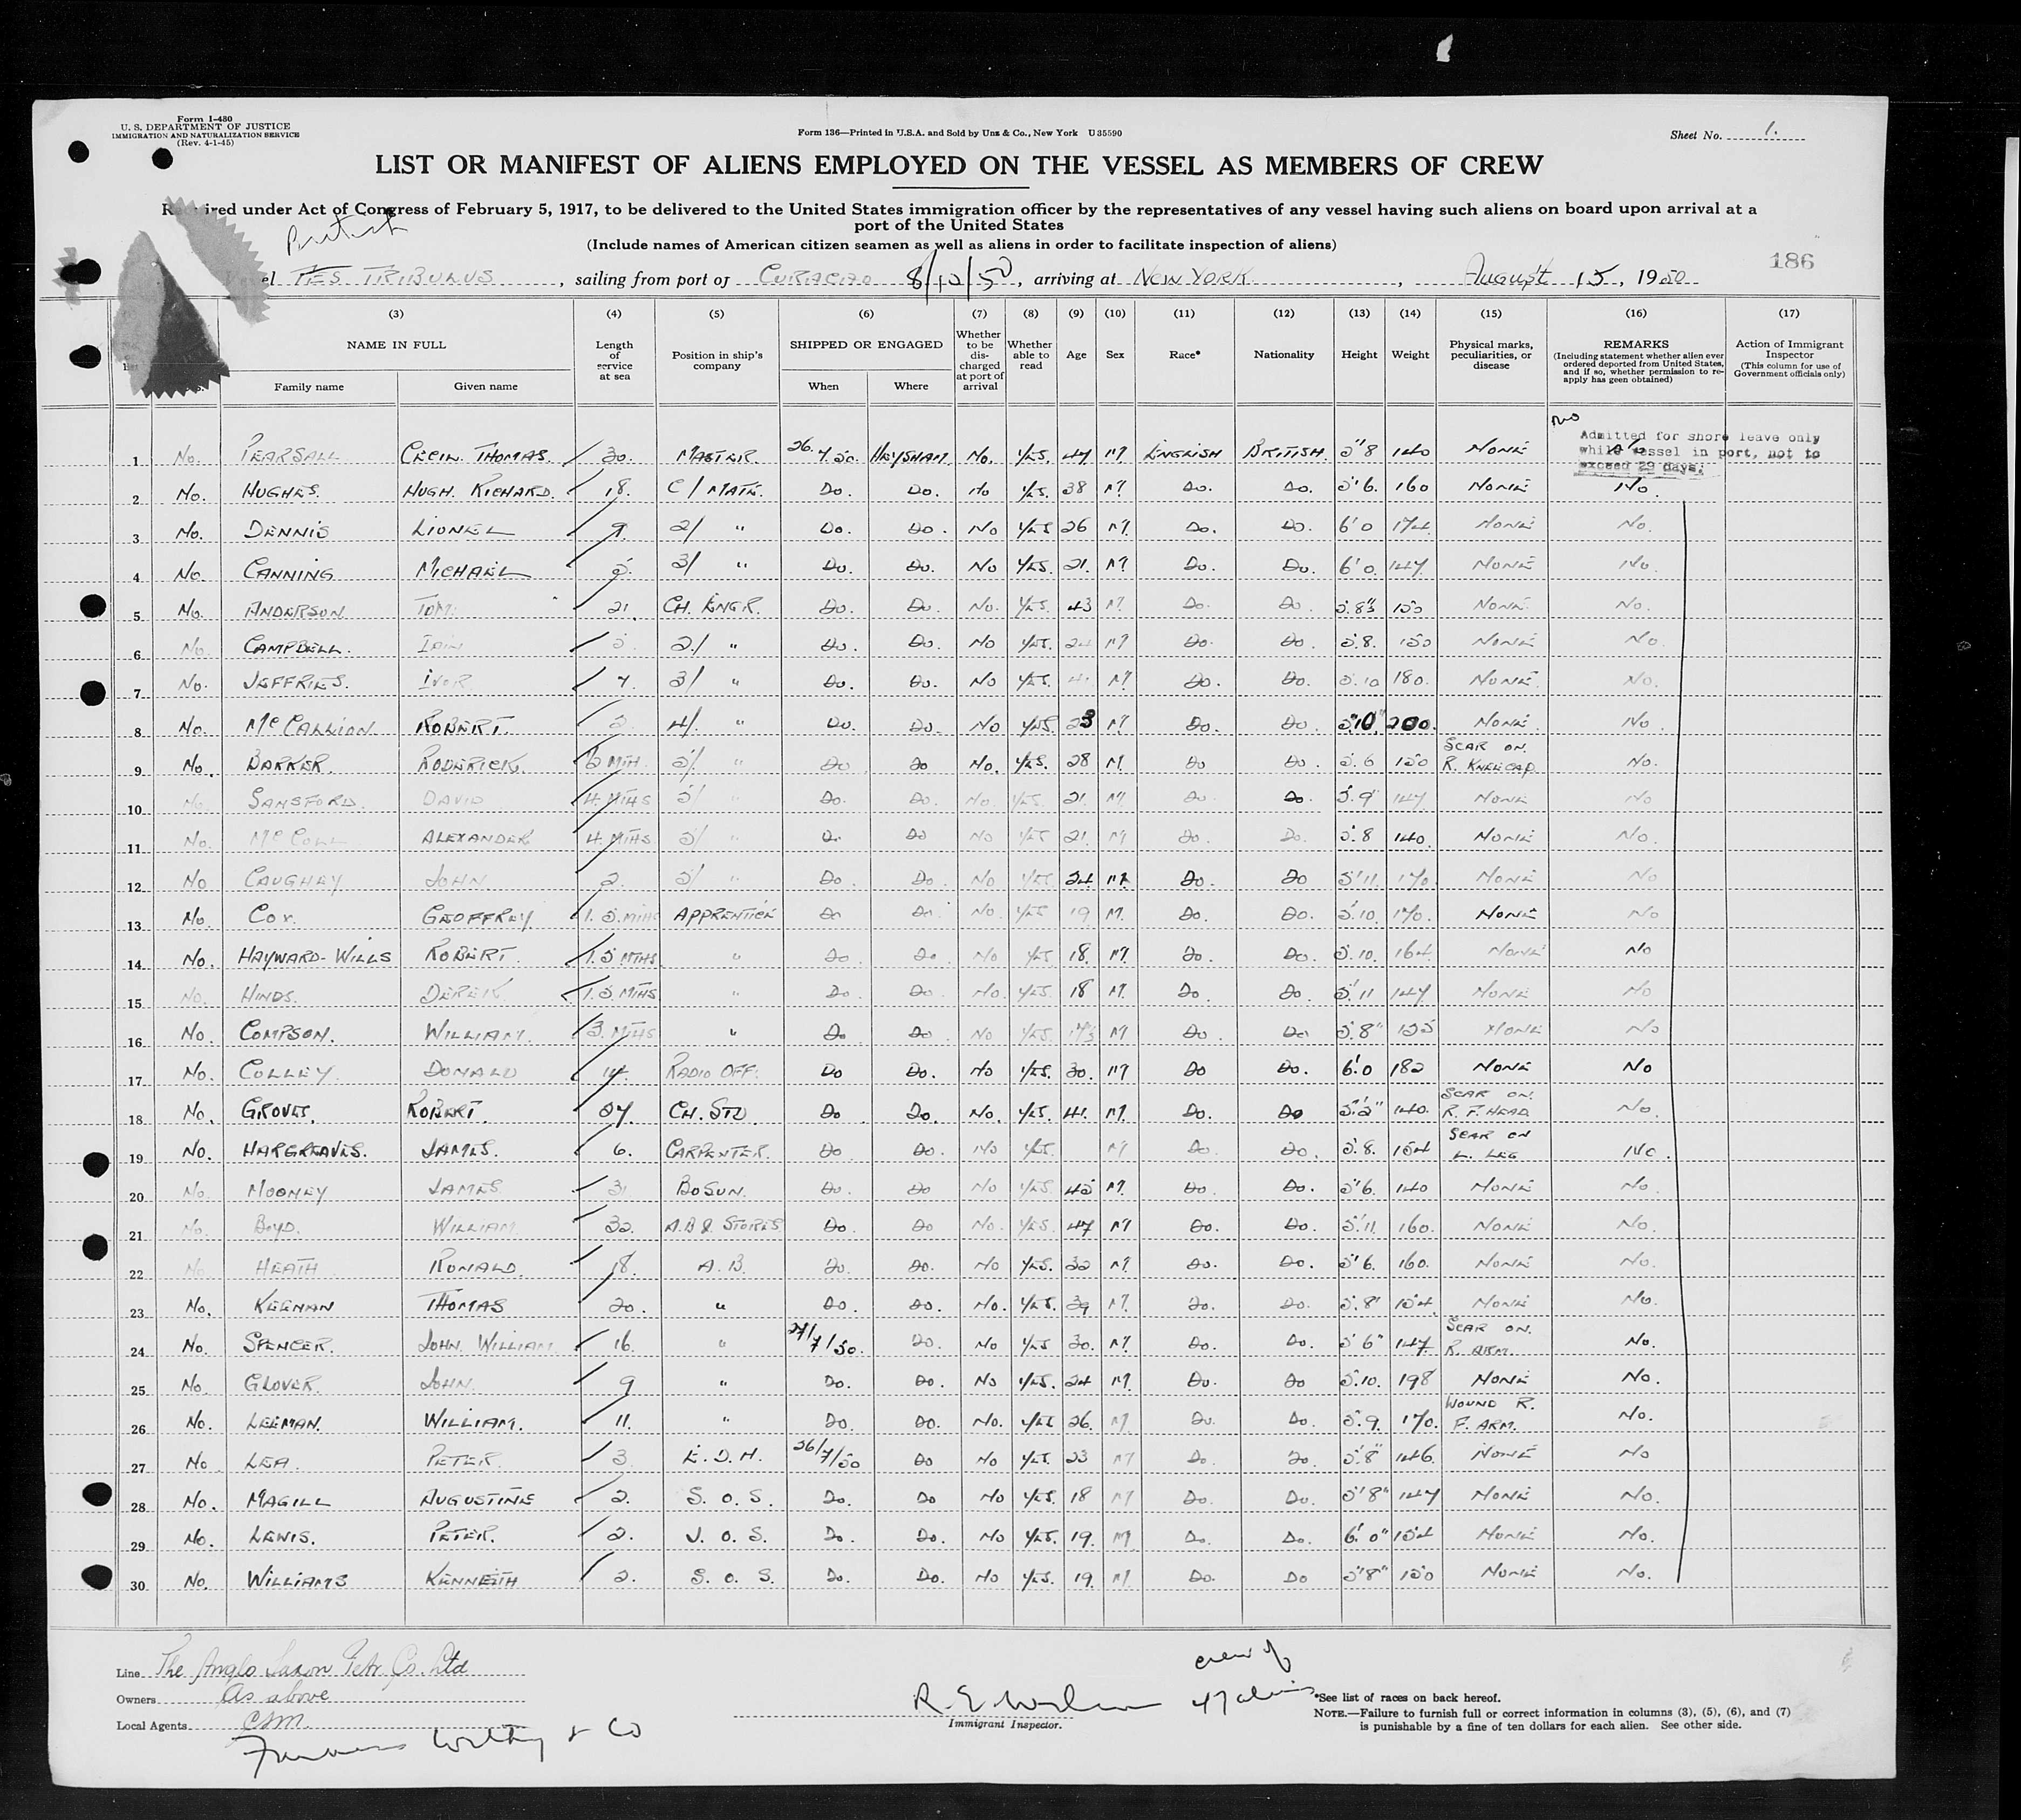 Form I-480
U. S. DEPARTMENT OF JUSTICE
IMMIGRATION AND NATURALIZATION SERVICE
(Rev. 4-1-45)
Form 136—Printed in U.S.A. and Sold by Unz & Co., New York U 35590
Sheet No. 1.
LIST OR MANIFEST OF ALIENS EMPLOYED ON THE VESSEL AS MEMBERS OF CREW
Required under Act of Congress of February 5, 1917, to be delivered to the United States immigration officer by the representatives of any vessel having such aliens on board upon arrival at a
port of the United States
British
(Include names of American citizen seamen as well as aliens in order to facilitate inspection of aliens)
186
TES TRIBULUS, sailing from port of CURACAO 8/10/50, arriving at NEW YORK, AUGUST 15, 1950
(3) (4) (5) (6) (7) (8) (9) (10) (11) (12) (13) (14) (15) (16) (17)
NAME IN FULL Length of service at sea Position in ship's company SHIPPED OR ENGAGED Whether to be discharged at port of arrival Whether able to read Age Sex Race* Nationality Height Weight Physical marks, peculiarities, or disease REMARKS (Including statement whether alien ever ordered deported from United States, and if so, whether permission to re-apply has geen obtained) Action of Immigrant Inspector (This column for use of Government officials only)
Family name Given name When Where
no
Admitted for shore leave only
while vessel in port, not to
exceed 29 days;
1 No. PEARSALL CECIL THOMAS. 30. MASTER. 26.7.50. HEYSHAM. No. YES. 47 M ENGLISH BRITISH. 5"8 140 NONE
2 No. HUGHES. HUGH. RICHARD. 18. C/MATE. Do. Do. No YES. 38 M Do. Do. 5'6. 160 NONE No.
3 No. DENNIS LIONEL 9. 2/ " Do. Do. No YES 26 M. Do. Do. 6'0 174. NONE No.
4 No. CANNING. MICHAEL 5. 3/ " Do. Do. No YES. 21. M Do. Do. 6'0. 147. NONE No.
5 No. ANDERSON TOM. 21. CH. ENGR. Do. Do. No. YES. 43 M. Do. Do. 5.8" 150 NONE. No.
6 No. CAMPBELL. IAIN 5 2./ " Do. Do. No YES. 24 M Do. Do. 5.8. 150 NONE No.
7 No. JEFFRIES. IVOR. 7. 3/ " Do. Do. No YES. M Do. Do. 5.10 180. NONE. No.
8 No. McCALLION ROBERT. 2. 4/. " Do. Do. No YES. 23 M Do. Do. 5"10" 200. NONE. No.
9 No. BARKER. RODERICK. 6 MTH. 5/. " Do Do No. YES. 28 M. Do Do. 5.6 150 SCAR ON. R. KNEECAP. No.
10 No. SANSFORD. DAVID 4. MTHS 5/ " Do. Do. No. YES. 21. M Do Do. 5.9" 147 NONE No
11 No. McCOLL ALEXANDER 4. MTHS 5/ " Do Do No YES 21. M Do. Do. 5.8 140. NONE No.
12 No CAUGHEY JOHN 2. 5/ " Do. Do. No YES. 24. M. Do. Do 5'11. 170. NONE No
13 No. COX. GEOFFREY. 1. 5. MTHS APPRENTICE Do Do No. YES 19 M. Do. Do. 5.10. 170. NONE No
14 No. HAYWARD-WILLS ROBERT. 1. 5 MTHS " Do. Do. No YES 18. M. Do. Do. 5.10. 164. NONE No
15 No. HINDS. DEREK. 1. 5. MTHS " Do Do No. YES. 18 M. Do. Do. 5'11 147 NONE No
16 No. COMPSON. WILLIAM. 3. MTHS " Do Do No YES. M Do. Do 5'.8" 125 NONE No
17 No. COLLEY DONALD 14. RADIO OFF. Do Do. No YES. 30. M Do Do. 6'.0 182 NONE No
18 No. GROVES. ROBERT. 27. CH. STD Do Do. No. YES. 41. M. Do. Do 140. SCAR ON. R. F. HEAD. No.
19 No. HARGREAVES. JAMES. 6. CARPENTER. Do Do. No YES. M Do. Do. 5'.8. 154 SCAR ON L. LEG No.
20 No. MOONEY JAMES. 31. BOSUN. Do. Do No YES. 45 M. Do. Do. 5'6. 140 NONE No.
21 No. BOYD. WILLIAM. 32. A.B & STORES Do. Do No. YES. 47 M Do. Do. 5'.11. 160. NONE No.
22 No HEATH RONALD. 18. A. B. Do. Do. No YES. 32 M. Do. Do. 5'6. 160. NONE No.
23 No. KEENAN THOMAS 20. " Do. Do. No. YES. 39 M. Do. Do. 5'.8" 154. NONE No.
24 No. SPENCER. JOHN. WILLIAM 16. " 27/7/50. Do. No YES 30. M. Do. Do. 5'6" 147 SCAR ON. R. ARM. No.
25 No. GLOVER. JOHN. 9 " Do. Do. No YES. 24 M. Do. Do 5'.10. 198 NONE No.
26 No. LEEMAN. WILLIAM. 11. " Do. Do. No. YES 26. M Do. Do. 5'.9. 170. WOUND R. F. ARM. No.
27 No LEA. PETER. 3. E. D. H. 26/7/50 Do No YES. 23 M Do. Do. 5'.8" 146. NONE No
28 No. MAGILL AUGUSTINE 2. S. O. S. Do. Do No YES. 18 M Do. Do. 5'8" 147 NONE No.
29 No. LEWIS. PETER. 2. J. O. S. Do. Do. No YES. 19. M Do. Do. 6'.0" 154 NONE No.
30 No. WILLIAMS KENNETH 2. S. O. S. Do. Do. No YES. 19. M Do. Do 5'8" 150 NONE No.
Line The Anglo Saxon Petr. Co. Ltd
Owners As above
Local Agents
Immigrant Inspector.
crew of
47 aliens
*See list of races on back hereof.
NOTE.—Failure to furnish full or correct information in columns (3), (5), (6), and (7)
is punishable by a fine of ten dollars for each alien. See other side.